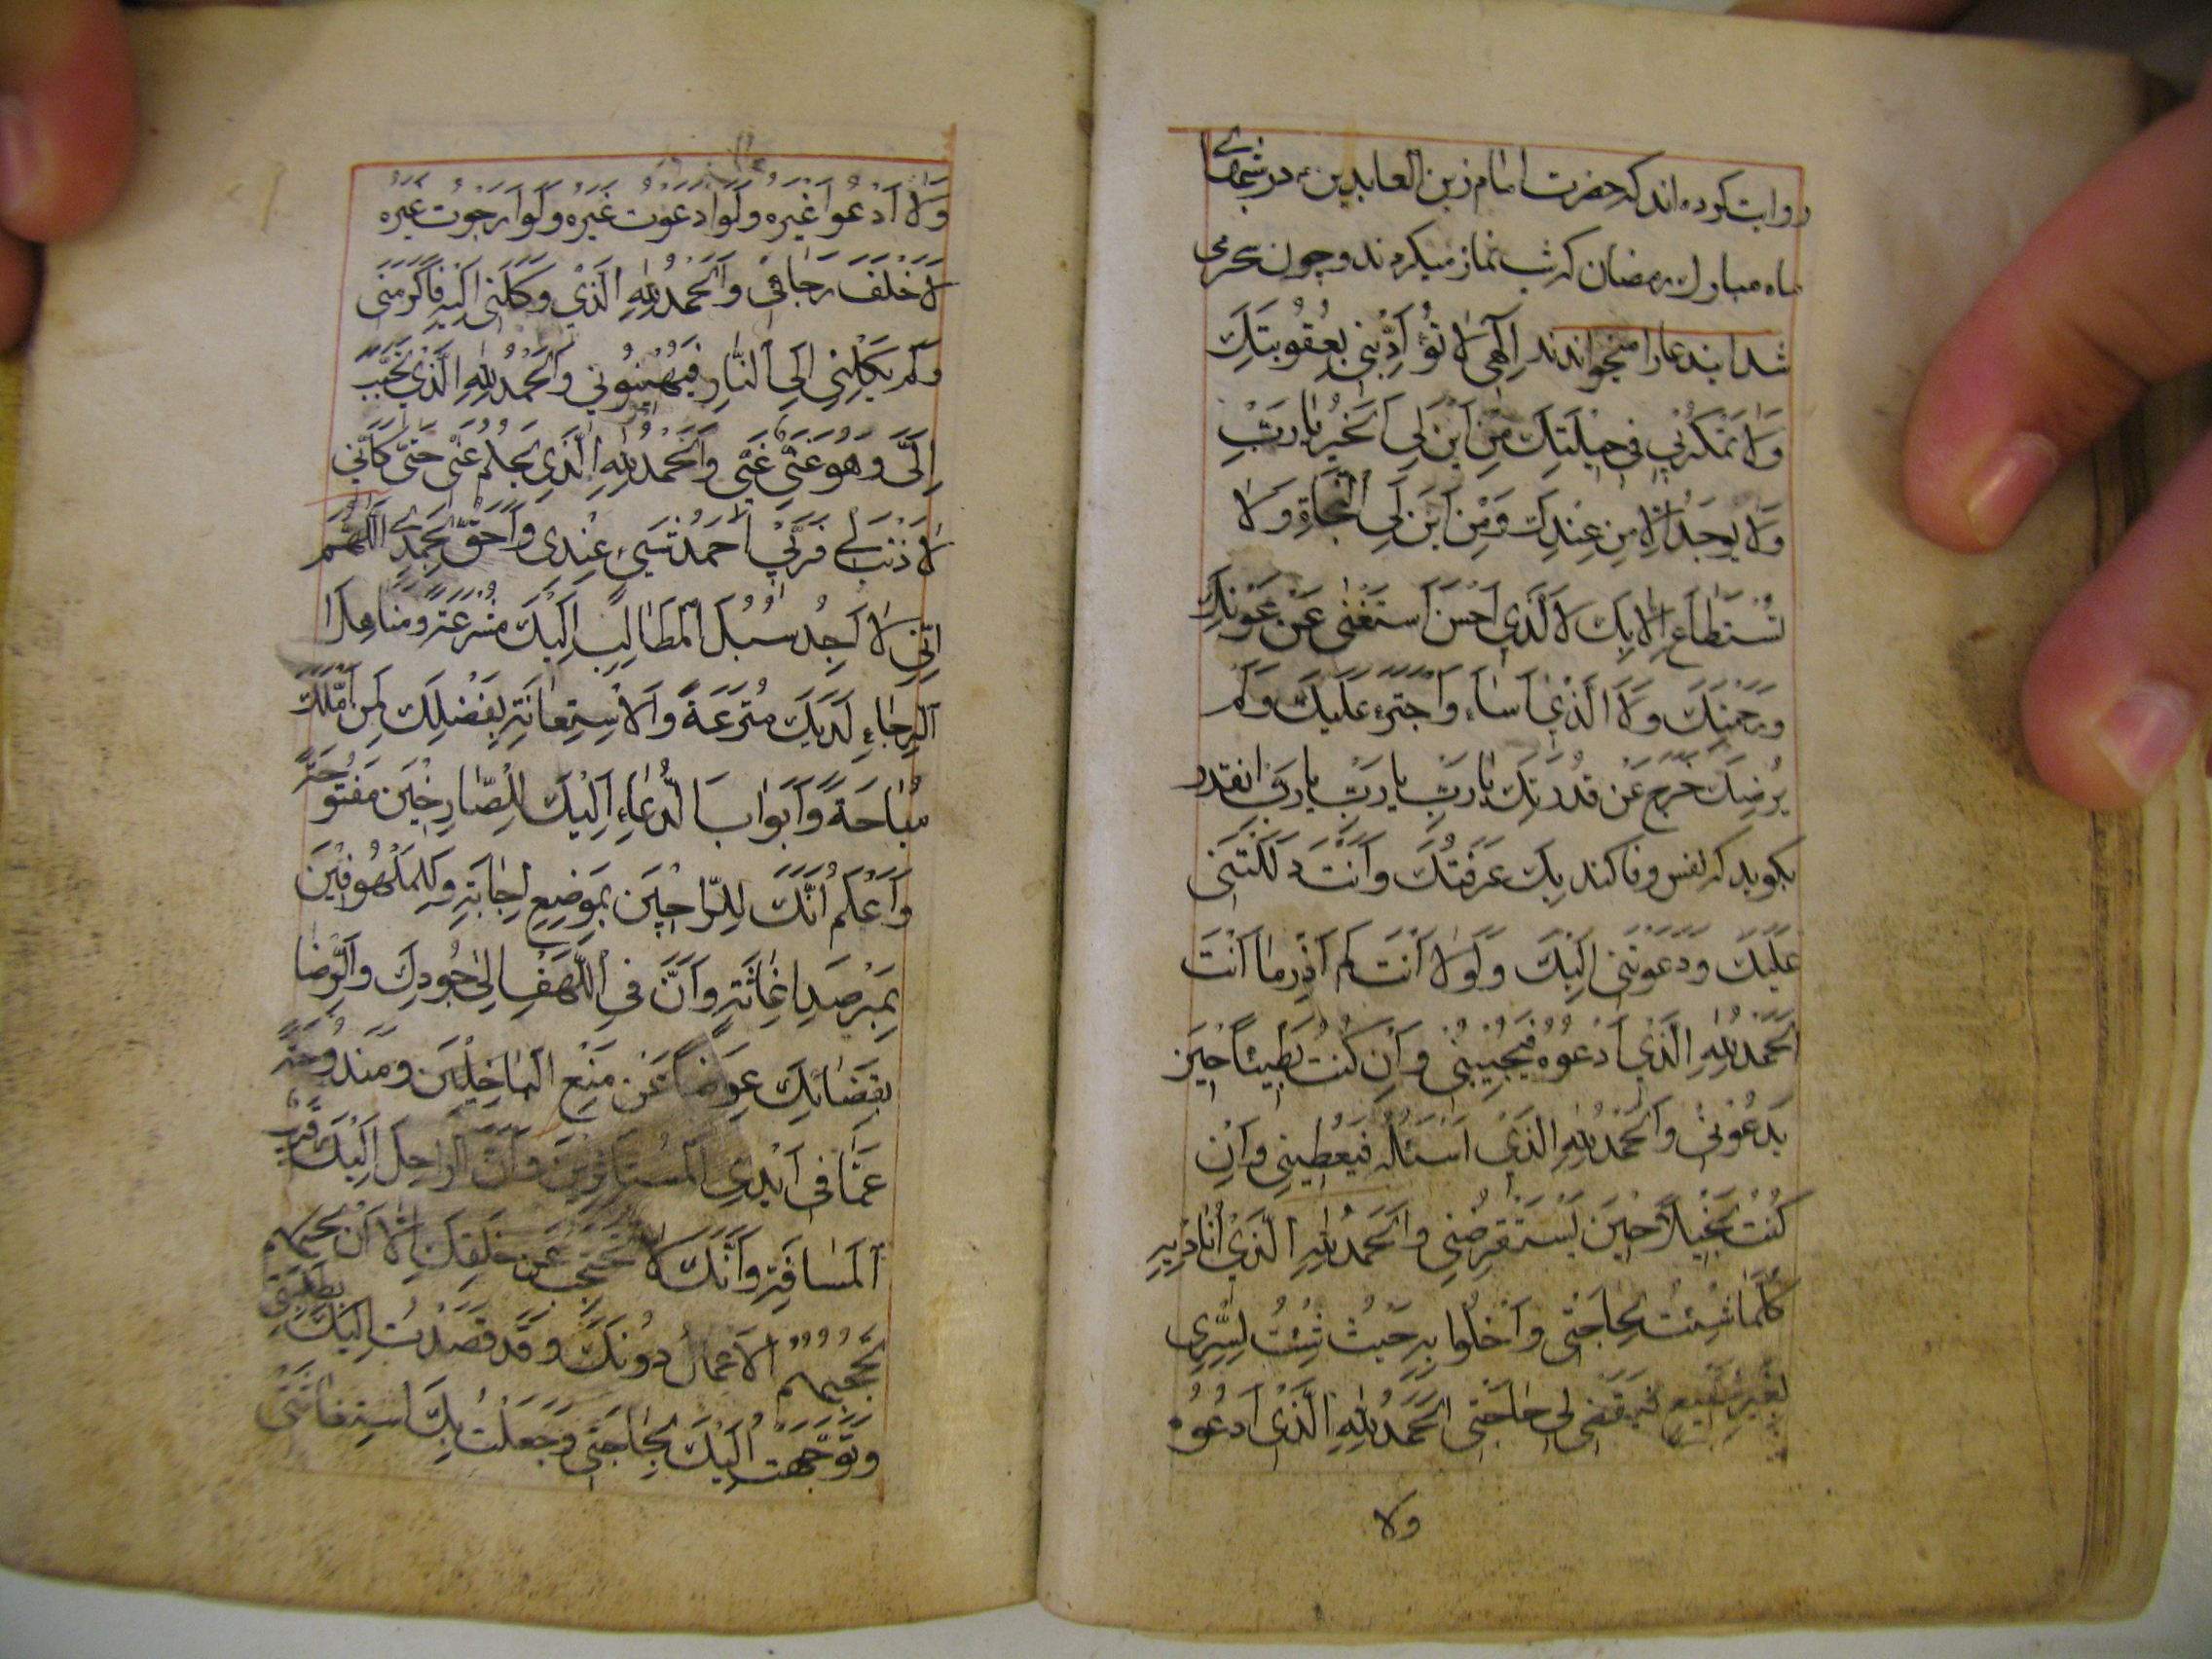 روایت کرده‌اند که حضرت امام زین العابدین در شبهای
ماه مبارک رمضان که شب نماز میکردند و چون سحر می
شد این دعا را میخواندند اِلٰهی لا تُؤَدِّبْنی بِعُقُوبَتِكَ
وَلا تَمْكُرْ بی فی حیلَتِكَ مِنْ اَیْنَ لِیَ الْخَیْرُ یا رَبِّ
وَلا یُوجَدُ اِلّا مِنْ عِنْدِكَ وَمِنْ اَیْنَ لِیَ النَّجاةُ وَلا
تُسْتَطاعُ اِلّا بِكَ لَا الَّذی اَحْسَنَ اسْتَغْنیٰ عَنْ عَوْنِكَ
وَرَحْمَتِكَ وَلَا الَّذی اَساءَ وَاجْتَرَءَ عَلَیْكَ وَلَمْ
یُرْضِكَ خَرَجَ عَنْ قُدْرَتِكَ یا رَبِّ یا رَبِّ یا رَبِّ انقدر
بکوید که نفس وفا کند بِكَ عَرَفْتُكَ وَاَنْتَ دَلَلْتَنی
عَلَیْكَ وَدَعَوْتَنی اِلَیْكَ وَلَوْلا اَنْتَ لَمْ اَدْرِ ما اَنْتَ
اَلْحَمْدُ لِلّٰهِ الَّذی اَدْعُوهُ فَیُجیبُنی وَاِنْ كُنْتُ بَطیئاً حینَ
یَدْعُونی وَالْحَمْدُ لِلّٰهِ الَّذی اَسْئَلُهُ فَیُعْطینی وَاِنْ
كُنْتُ بَخیلاً حینَ یَسْتَقْرِضُنی وَالْحَمْدُ لِلّٰهِ الَّذی اُنادیهِ
كُلَّما شِئْتُ لِحاجَتی وَاَخْلُوا بِهِ حَیْثُ شِئْتُ لِسِرّی
بِغَیْرِ شَفیعٍ فَیَقْضی لی حاجَتی اَلْحَمْدُ لِلّٰهِ الَّذی اَدْعُوهُ
ولا
وَلا اَدْعُوا غَیْرَهُ وَلَوْ دَعَوْتُ غَیْرَهُ وَلَوْ رَجَوْتُ غَیْرَهُ
لَاَخْلَفَ رَجائی وَالْحَمْدُ لِلّٰهِ الَّذی وَكَلَنی اِلَیْهِ فَاَكْرَمَنی
وَلَمْ یَكِلْنی اِلَی النّارِ فَیُهینُونی وَالْحَمْدُ لِلّٰهِ الَّذی تَحَبَّبَ
اِلَیَّ وَهُوَ غَنِیٌّ عَنّی وَالْحَمْدُ لِلّٰهِ الَّذی یَحْلُمُ عَنّی حَتّیٰ كَاَنّی
لا ذَنْبَ لی فَرَبّی اَحْمَدُ شَیْءٍ عِنْدی وَاَحَقُّ بِحَمْدی اَللّٰهُمَّ
اِنّی لا اَجِدُ سُبُلَ الْمَطالِبِ اِلَیْكَ مُشْرَعَةً وَمَناهِلَ
الرَّجاءِ لَدَیْكَ مُتْرَعَةً وَالْاِسْتِعانَةِ بِفَضْلِكَ لِمَنْ اَمَّلَكَ
مُباحَةً وَاَبْوابَ الدُّعاءِ اِلَیْكَ لِلصّارِخینَ مَفْتُوحَةً
وَاَعْلَمُ اَنَّكَ لِلرّاجینَ بِمَوْضِعِ اِجابَةٍ وَلِلْمَلْهُوفینَ
بِمَرْصَدِ اِغاثَةٍ وَاَنَّ فِی اللَّهَفِ اِلیٰ جُودِكَ وَالرِّضا
بِقَضائِكَ عِوَضاً عَنْ مَنْعِ الْباخِلینَ وَمَنْدُوحَةً
عَمّا فی اَیْدِی الْمُسْتَأْثِرینَ وَاَنَّ الرّاحِلَ اِلَیْكَ قَریبُ
الْمَسافَةِ وَاَنَّكَ لا تَحْتَجِبُ عَنْ خَلْقِكَ اِلّا اَنْ تَحْجُبَهُمُ
الْاَعْمالُ دُونَكَ وَقَدْ قَصَدْتُ اِلَیْكَ بِطَلِبَتی
وَتَوَجَّهْتُ اِلَیْكَ بِحاجَتی وَجَعَلْتُ بِكَ اسْتِغاثَتی